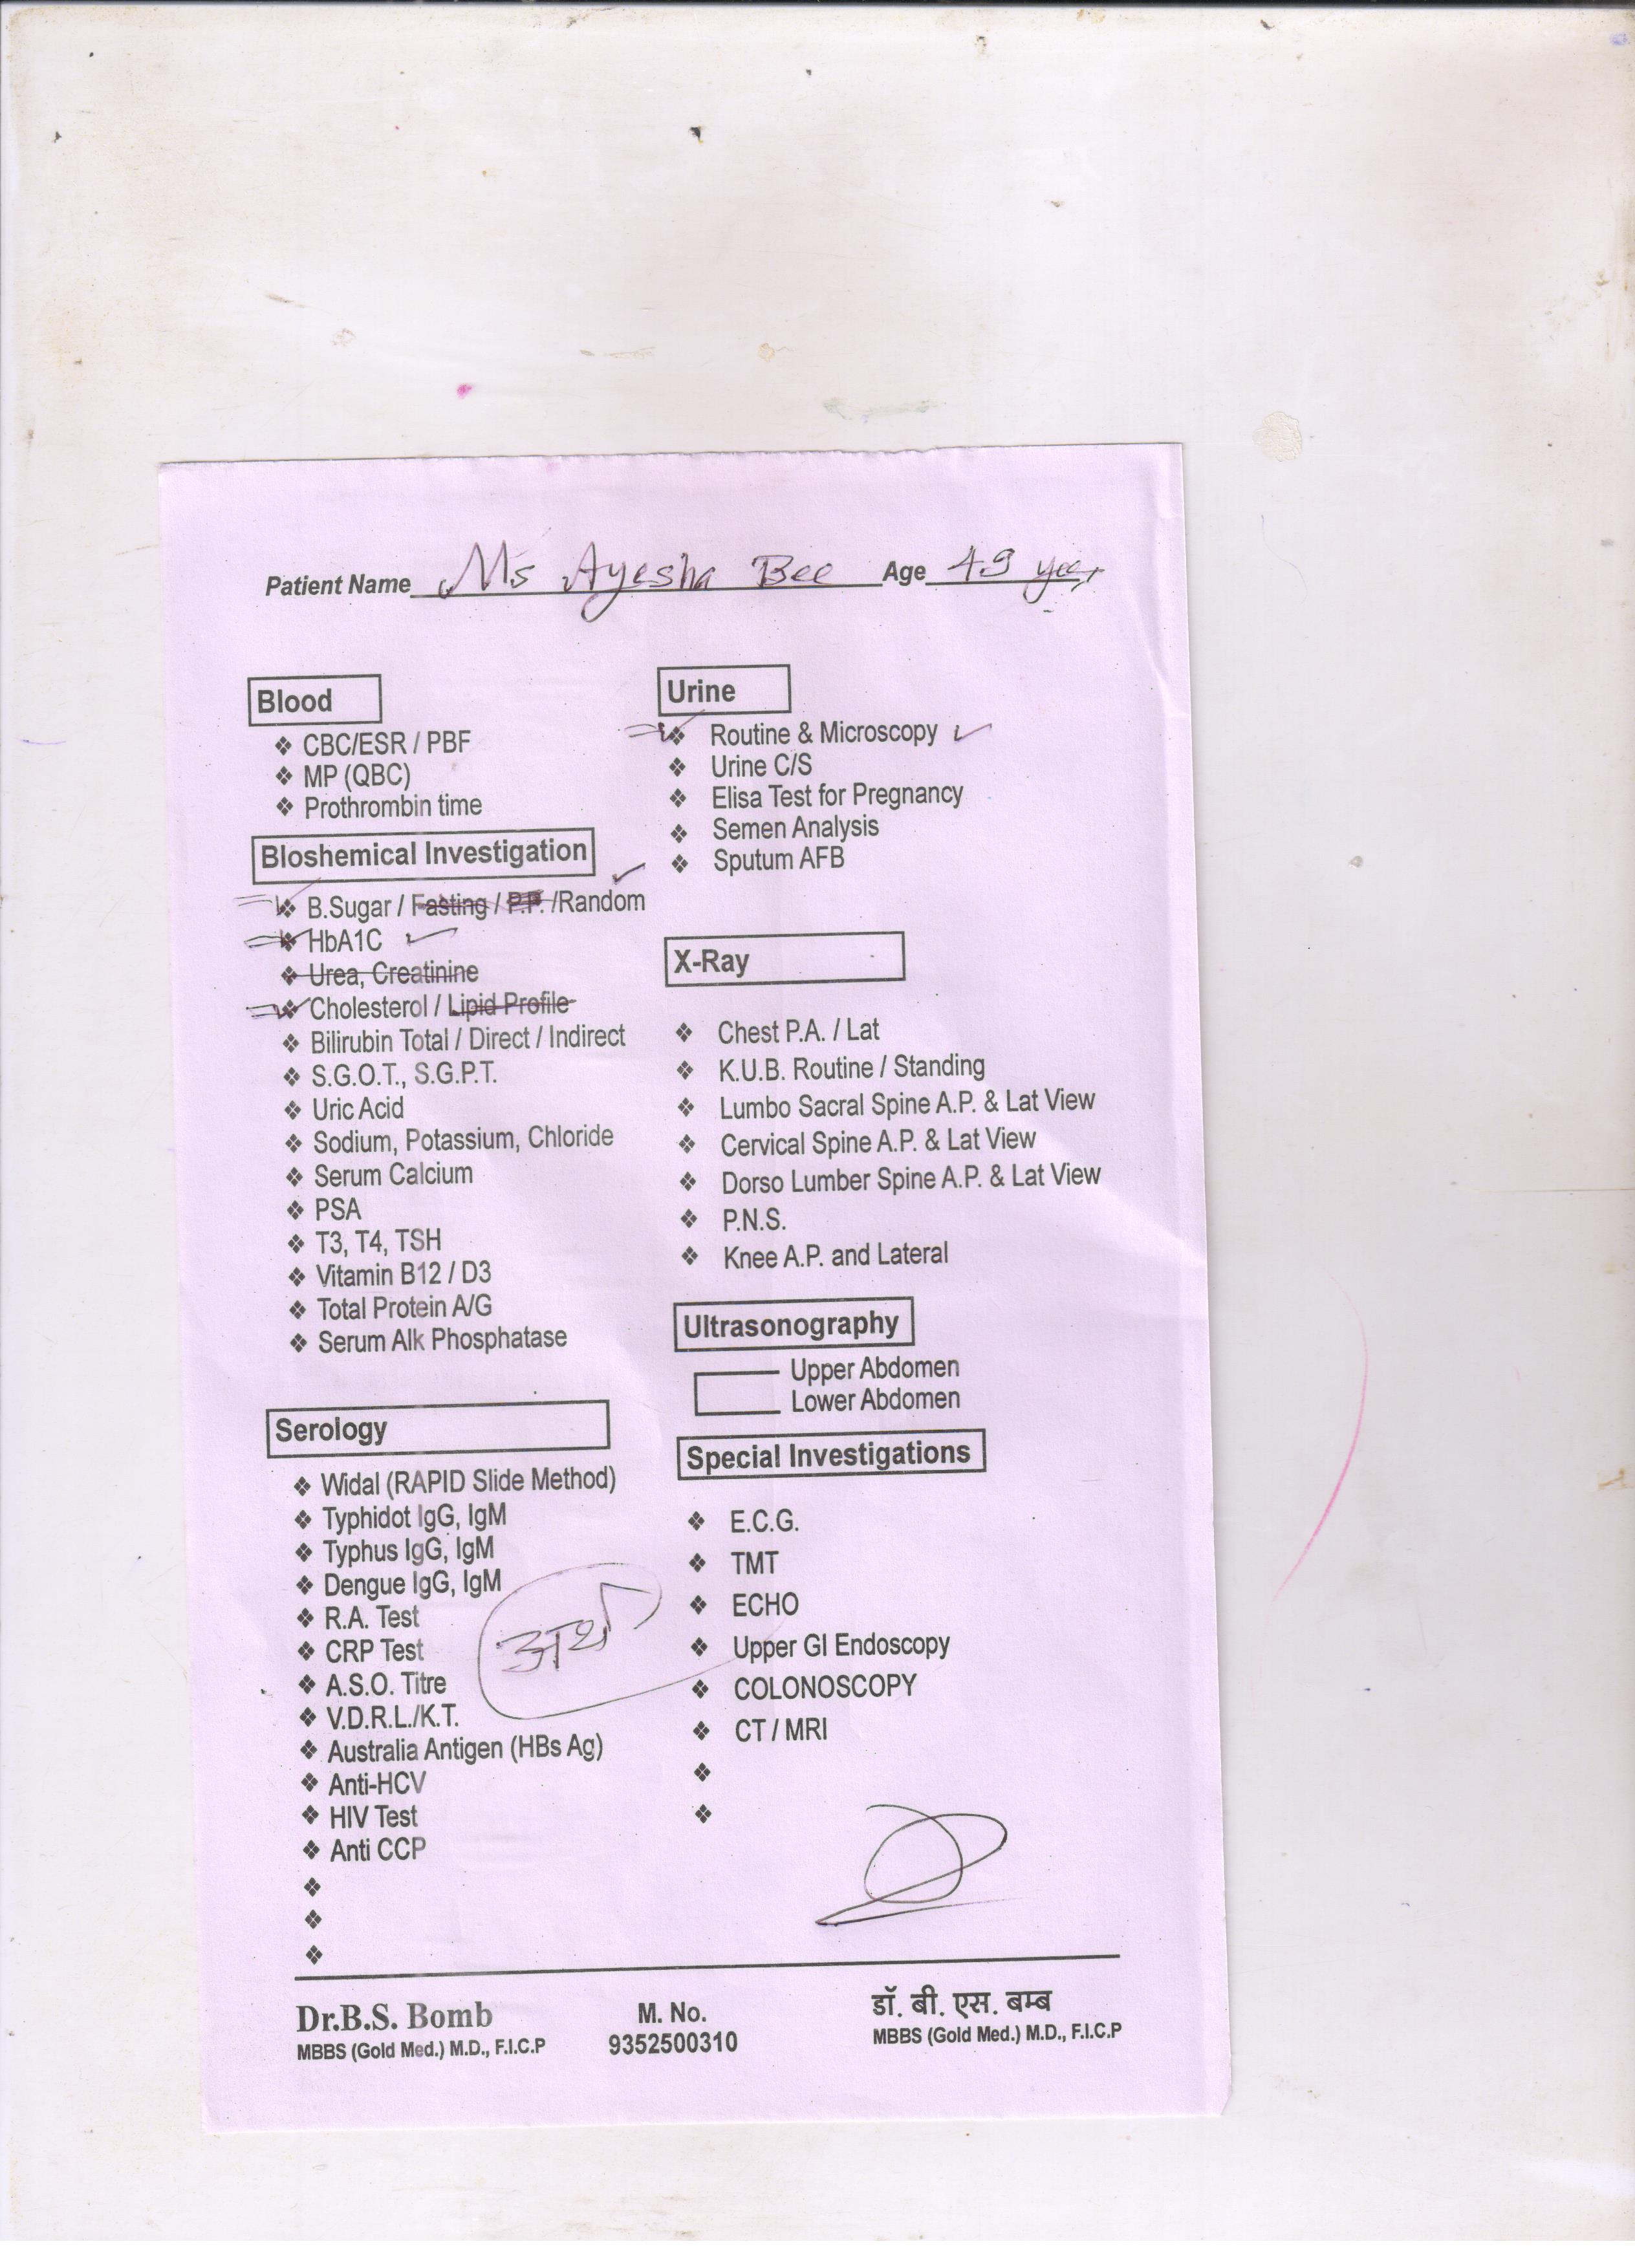 Patient Name Ms Ayesha Bee Age 49
Blood
❖ CBC/ESR / PBF
❖ MP (QBC)
❖ Prothrombin time
Bloshemical Investigation
❖ B.Sugar / Fasting / P.P. /Random ✓
❖ HbA1C ✓
❖ Urea, Creatinine
❖ Cholesterol / Lipid Profile
❖ Bilirubin Total / Direct / Indirect
❖ S.G.O.T., S.G.P.T.
❖ Uric Acid
❖ Sodium, Potassium, Chloride
❖ Serum Calcium
❖ PSA
❖ T3, T4, TSH
❖ Vitamin B12 / D3
❖ Total Protein A/G
❖ Serum Alk Phosphatase
Serology
❖ Widal (RAPID Slide Method)
❖ Typhidot IgG, IgM
❖ Typhus IgG, IgM
❖ Dengue IgG, IgM
❖ R.A. Test
❖ CRP Test
❖ A.S.O. Titre
❖ V.D.R.L./K.T.
❖ Australia Antigen (HBs Ag)
❖ Anti-HCV
❖ HIV Test
❖ Anti CCP
Urine
❖ Routine & Microscopy ✓
❖ Urine C/S
❖ Elisa Test for Pregnancy
❖ Semen Analysis
❖ Sputum AFB
X-Ray
❖ Chest P.A. / Lat
❖ K.U.B. Routine / Standing
❖ Lumbo Sacral Spine A.P. & Lat View
❖ Cervical Spine A.P. & Lat View
❖ Dorso Lumber Spine A.P. & Lat View
❖ P.N.S.
❖ Knee A.P. and Lateral
Ultrasonography
Upper Abdomen
Lower Abdomen
Special Investigations
❖ E.C.G.
❖ TMT
❖ ECHO
❖ Upper GI Endoscopy
❖ COLONOSCOPY
❖ CT / MRI
Dr.B.S. Bomb
MBBS (Gold Med.) M.D., F.I.C.P
M. No.
9352500310
डॉ. बी. एस. बम्ब
MBBS (Gold Med.) M.D., F.I.C.P